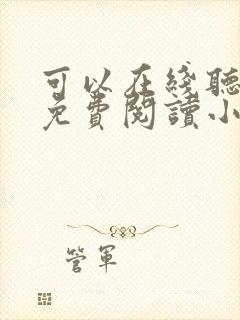 可以在綫聽
免費閱讀小
管軍